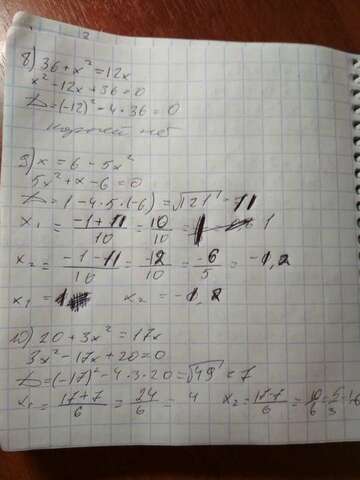 8) 36 + x² = 12x
x² - 12x + 36 = 0
D = (-12)² - 4·36 = 0
корней нет
9) x = 6 - 5x²
5x² + x - 6 = 0
D = 1 - 4·5·(-6) = √121 = 11
x₁ = (-1 + 11)/10 = 10/10 = 1
x₂ = (-1 - 11)/10 = -12/10 = -6/5 = -1,2
x₁ = 1 x₂ = -1,2
10) 20 + 3x² = 17x
3x² - 17x + 20 = 0
D = (-17)² - 4·3·20 = √49 = 7
x₁ = (17 + 7)/6 = 24/6 = 4 x₂ = (17-7)/6 = 10/6 = 5/3